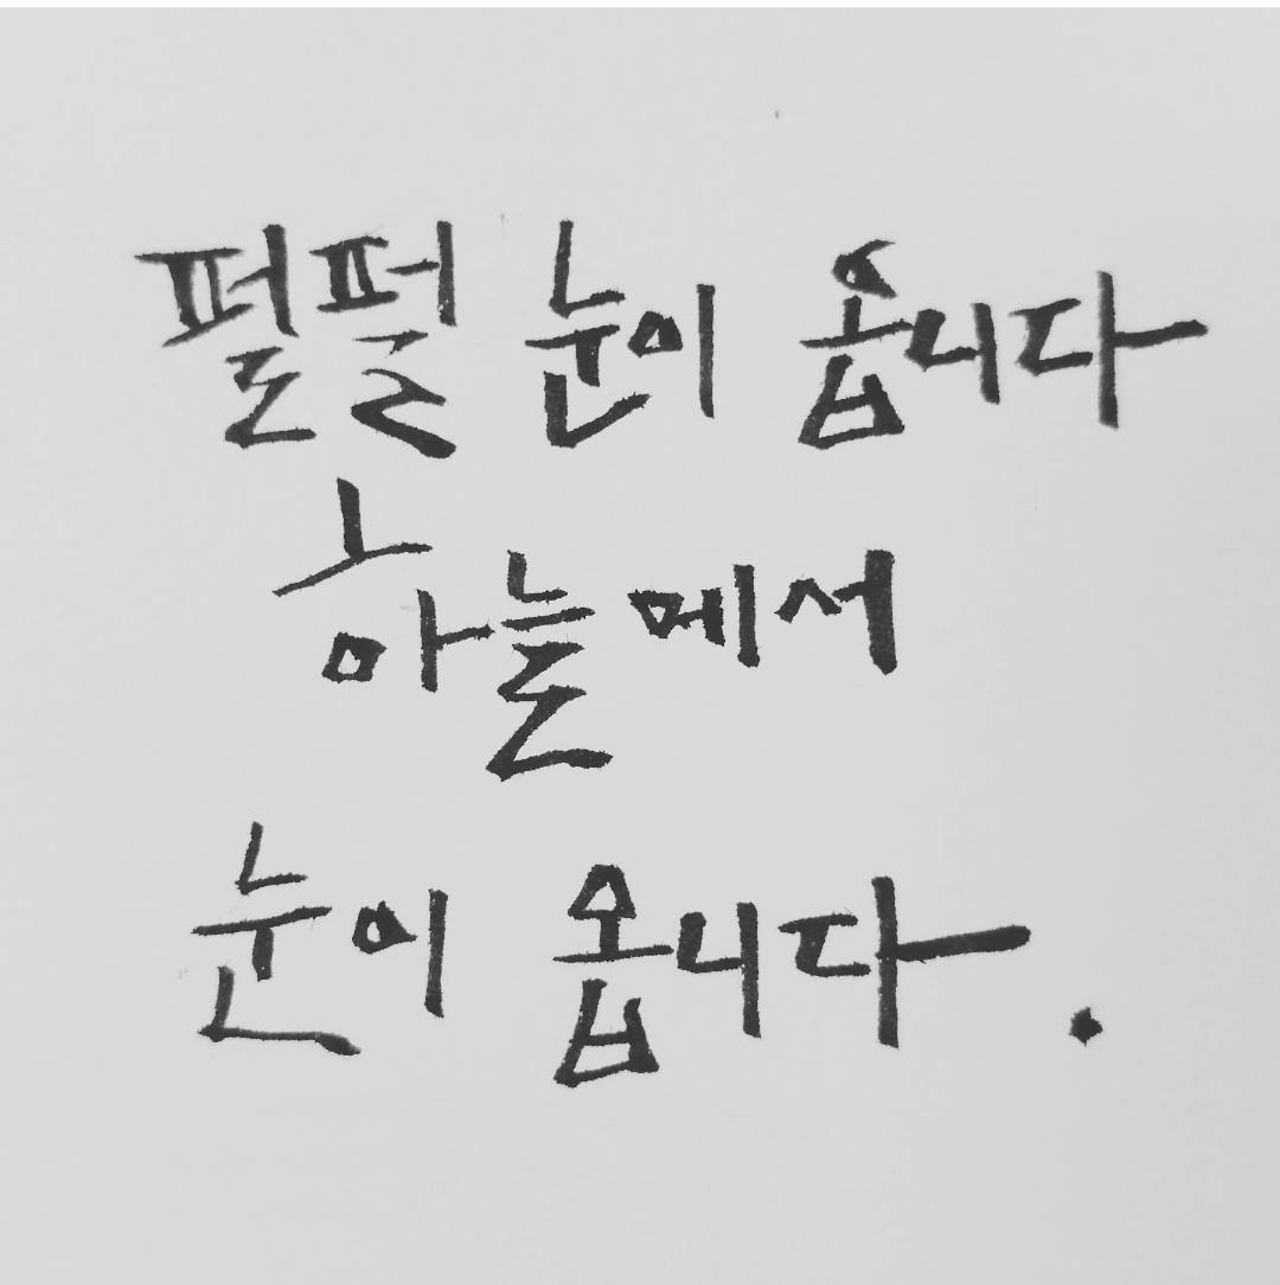 펄펄 눈이 옵니다
하늘에서
눈이 옵니다.